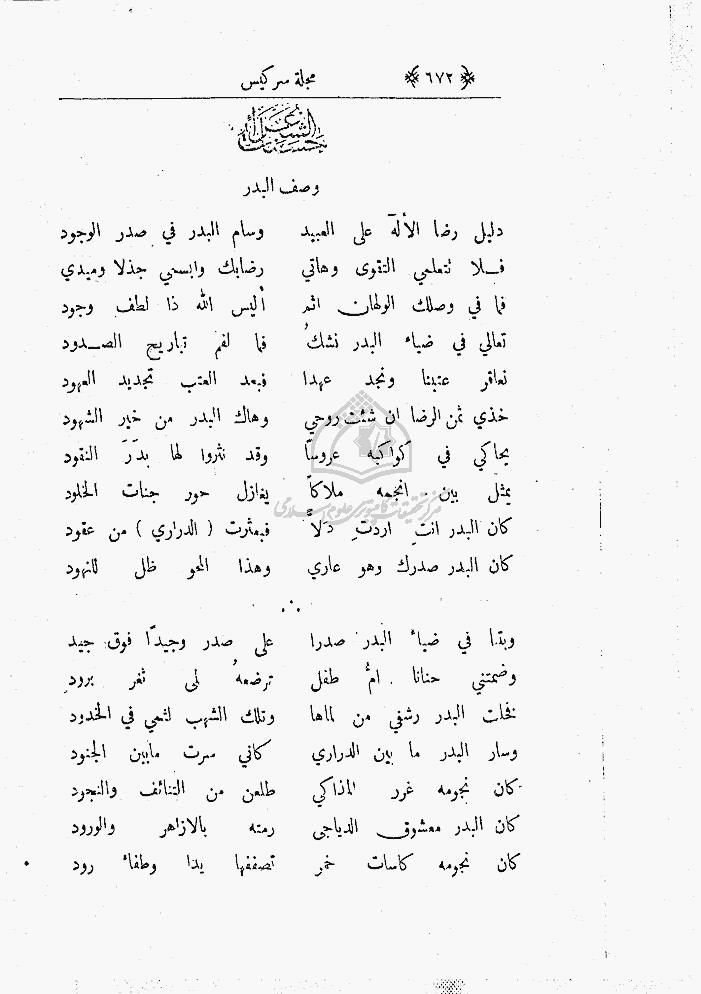 ﴿ ٦٧٢ ﴾ مجلة سركيس
حسنات الشعراء
وصف البدر
دليل رضا الأله على العبيد وسام البدر في صدر الوجود
فلا تتعلمي التقوى وهاتي رضابك وابسمي جذلا وميدي
فما في وصلك الولهان اثم أليس الله ذا لطف وجود
تعالي في ضياء البدر نشك فما لفم تباريح الصدود
نعاقر عتبنا ونجد عهدا فبعد العتب تجديد العهود
خذي ثمن الرضا ان شئت روحي وهاك البدر من خير الشهود
يحاكي في كواكبه عروسًا وقد نثروا لها بِدَرَ النقود
يمثل بين انجمه ملاكاً يغازل حور جنات الخلود
كان البدر انتِ اردتِ دلاًّ فبعثرت ( الدراري ) من عقود
كان البدر صدرك وهو عاري وهذا المحو ظل للنهود
وبتنا في ضياء البدر صدرا على صدر وجيدًا فوق جيد
وضمتني حنانا امُّ طفل ترضعهُ لمى ثغر برود
نخلت البدر رشفي من لماها وتلك الشهب لثمي في الخدود
وسار البدر ما بين الدراري كاني سرت مابين الجنود
كان نجومه غرر المذاكي طلعن من التنائف والنجود
كان البدر معشوق الدياجى رمته بالازاهر والورود
كان نجومه كاسات خمر تصففها يدا وطفاء رود
مركز تحقيقات كامپيوتري علوم اسلامى